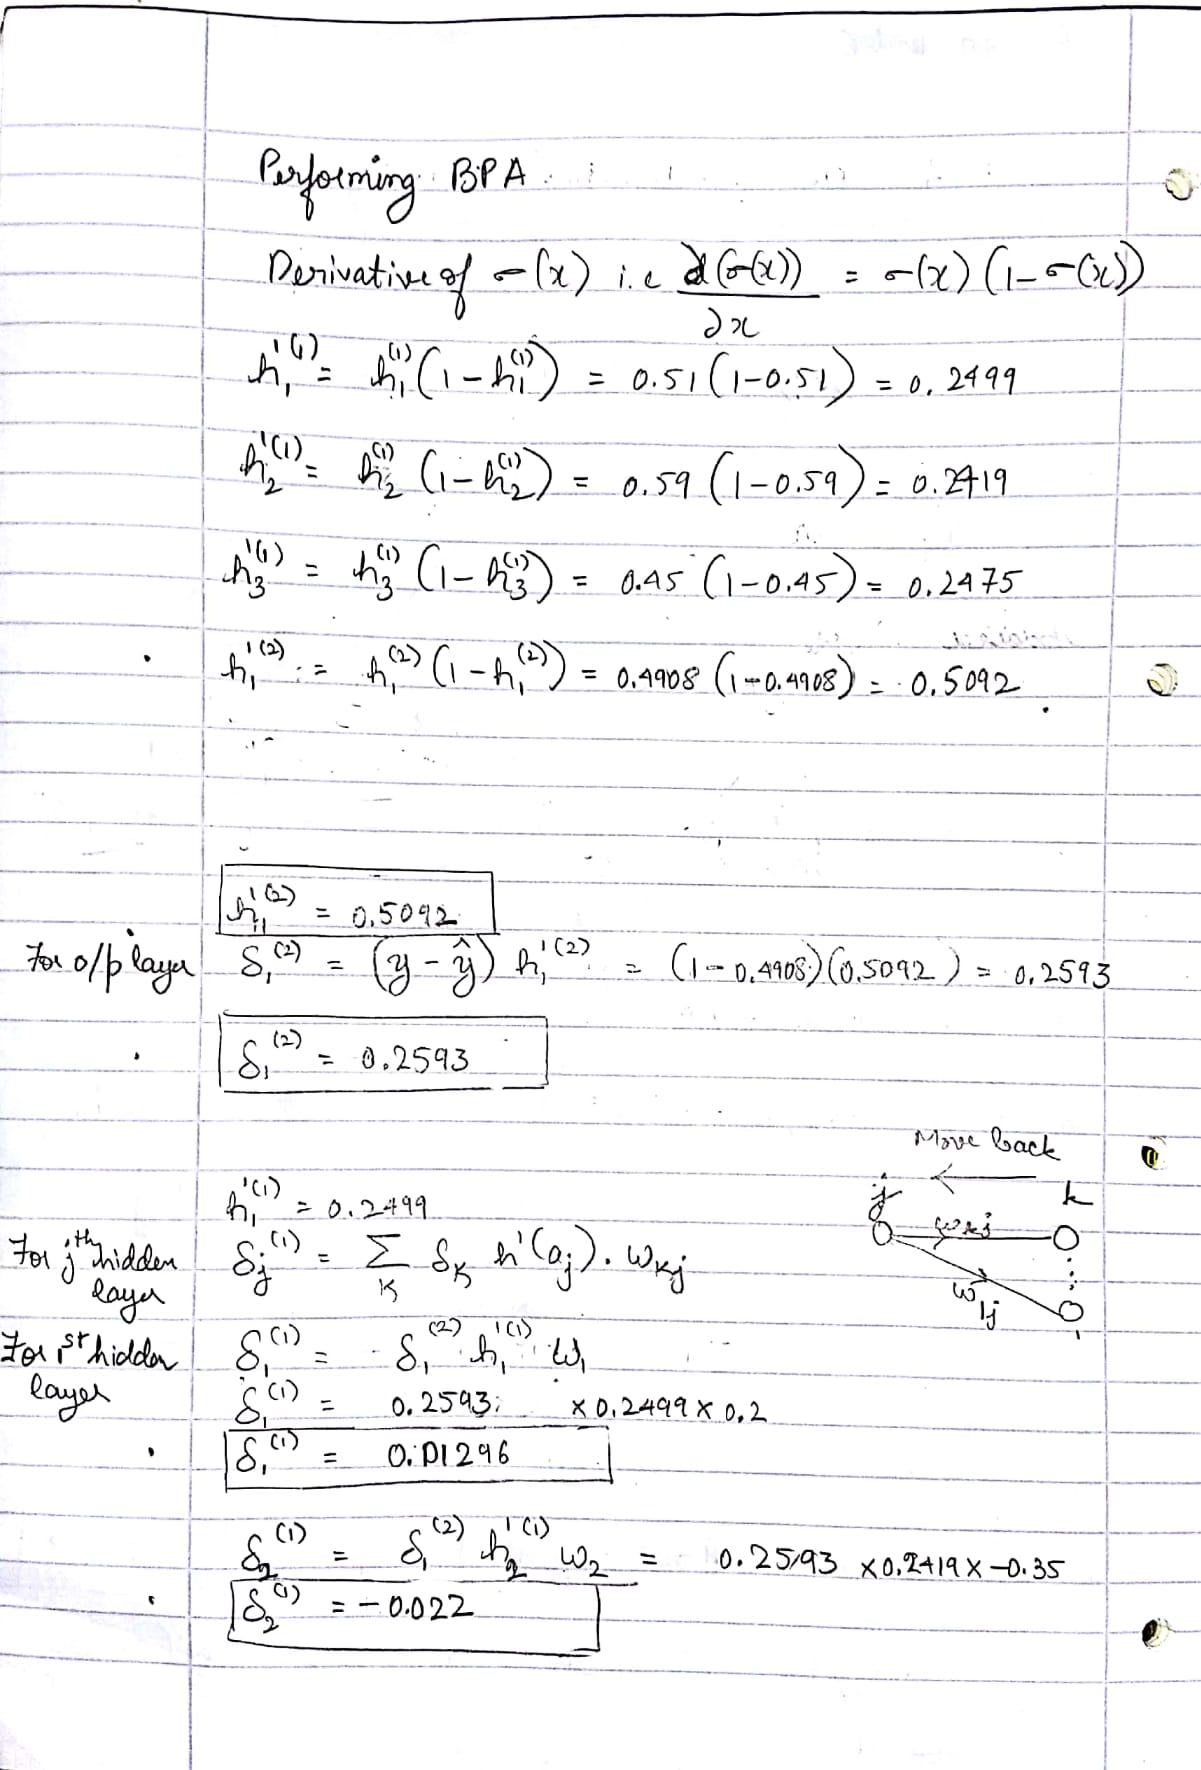 Performing BPA
Derivative of σ(x) i.e ∂(σ(x))/∂x = σ(x) (1-σ(x))
h₁'⁽¹⁾ = h₁⁽¹⁾(1-h₁⁽¹⁾) = 0.51(1-0.51) = 0.2499
h₂'⁽¹⁾ = h₂⁽¹⁾(1-h₂⁽¹⁾) = 0.59(1-0.59) = 0.2419
h₃'⁽¹⁾ = h₃⁽¹⁾(1-h₃⁽¹⁾) = 0.45(1-0.45) = 0.2475
h₁'⁽²⁾ = h₁⁽²⁾(1-h₁⁽²⁾) = 0.4908(1-0.4908) = 0.5092
h₁'⁽²⁾ = 0.5092
For o/p layer δ₁⁽²⁾ = (y-ŷ) h₁'⁽²⁾ = (1-0.4908)(0.5092) = 0.2593
δ₁⁽²⁾ = 0.2593
Move back
j k
h₁'⁽¹⁾ = 0.2499
wkj
For jth hidden layer δj⁽¹⁾ = Σk δk h'(aj). wkj
w1j
1
For 1st hidden layer δ₁⁽¹⁾ = δ₁⁽²⁾ h₁'⁽¹⁾ w₁
δ₁⁽¹⁾ = 0.2593 x 0.2499 x 0.2
δ₁⁽¹⁾ = 0.01296
δ₂⁽¹⁾ = δ₁⁽²⁾ h₂'⁽¹⁾ w₂ = 0.2593 x 0.2419 x -0.35
δ₂⁽¹⁾ = -0.022